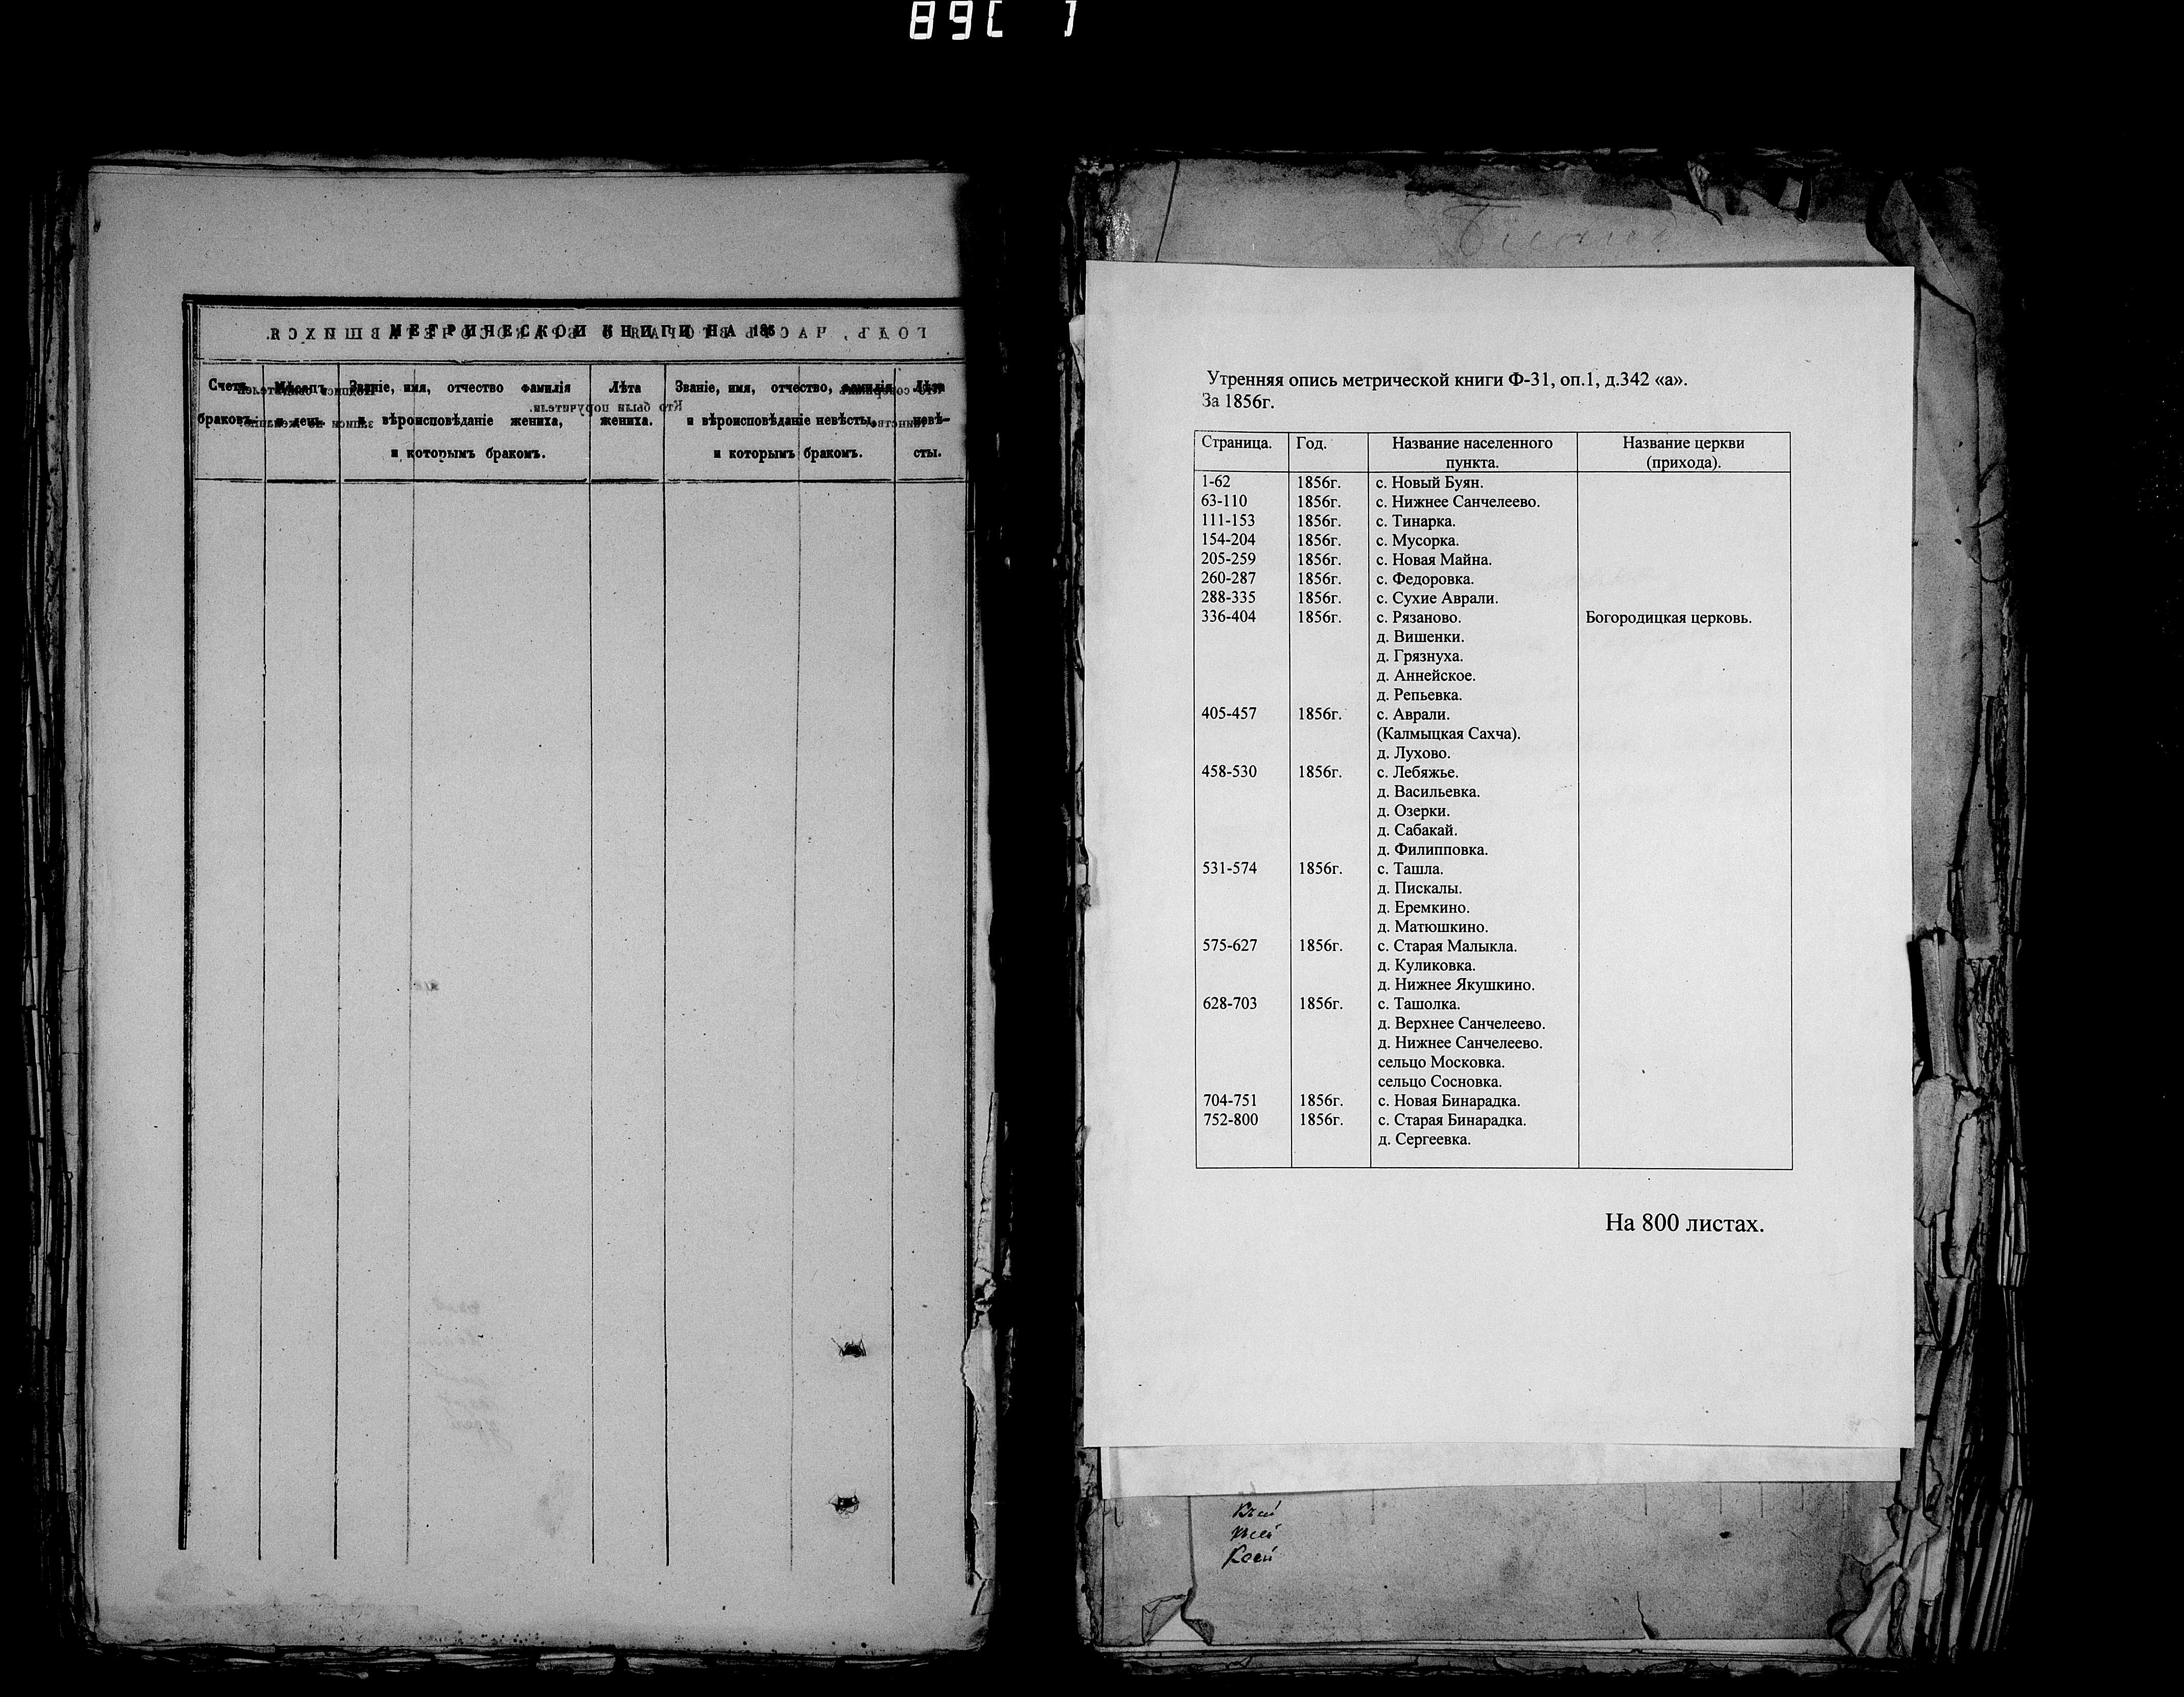 89[ ]
МЕТРИЧЕСКОЙ КНИГИ НА 185
ГОДЪ, ЧАСТЬ ВТОРАЯ О БРАКОСОЧЕТАВШИХСЯ.
Счетъ браковъ.
Мѣсяцъ и день.
Званіе, имя, отчество фамилія
и вѣроисповѣданіе жениха,
и которымъ бракомъ.
Лѣта
жениха.
Званіе, имя, отчество, фамилія
и вѣроисповѣданіе невѣсты,
и которымъ бракомъ.
Лѣта
невѣ-
сты.
Кто были поручители.
Утренняя опись метрической книги Ф-31, оп.1, д.342 «а».
За 1856г.
Страница. Год. Название населенного пункта. Название церкви (прихода).
1-62 1856г. с. Новый Буян.
63-110 1856г. с. Нижнее Санчелеево.
111-153 1856г. с. Тинарка.
154-204 1856г. с. Мусорка.
205-259 1856г. с. Новая Майна.
260-287 1856г. с. Федоровка.
288-335 1856г. с. Сухие Аврали.
336-404 1856г. с. Рязаново. Богородицкая церковь.
д. Вишенки.
д. Грязнуха.
д. Аннейское.
д. Репьевка.
405-457 1856г. с. Аврали.
(Калмыцкая Сахча).
д. Лухово.
458-530 1856г. с. Лебяжье.
д. Васильевка.
д. Озерки.
д. Сабакай.
д. Филипповка.
531-574 1856г. с. Ташла.
д. Пискалы.
д. Еремкино.
д. Матюшкино.
575-627 1856г. с. Старая Малыкла.
д. Куликовка.
д. Нижнее Якушкино.
628-703 1856г. с. Ташолка.
д. Верхнее Санчелеево.
д. Нижнее Санчелеево.
сельцо Московка.
сельцо Сосновка.
704-751 1856г. с. Новая Бинарадка.
752-800 1856г. с. Старая Бинарадка.
д. Сергеевка.
На 800 листах.